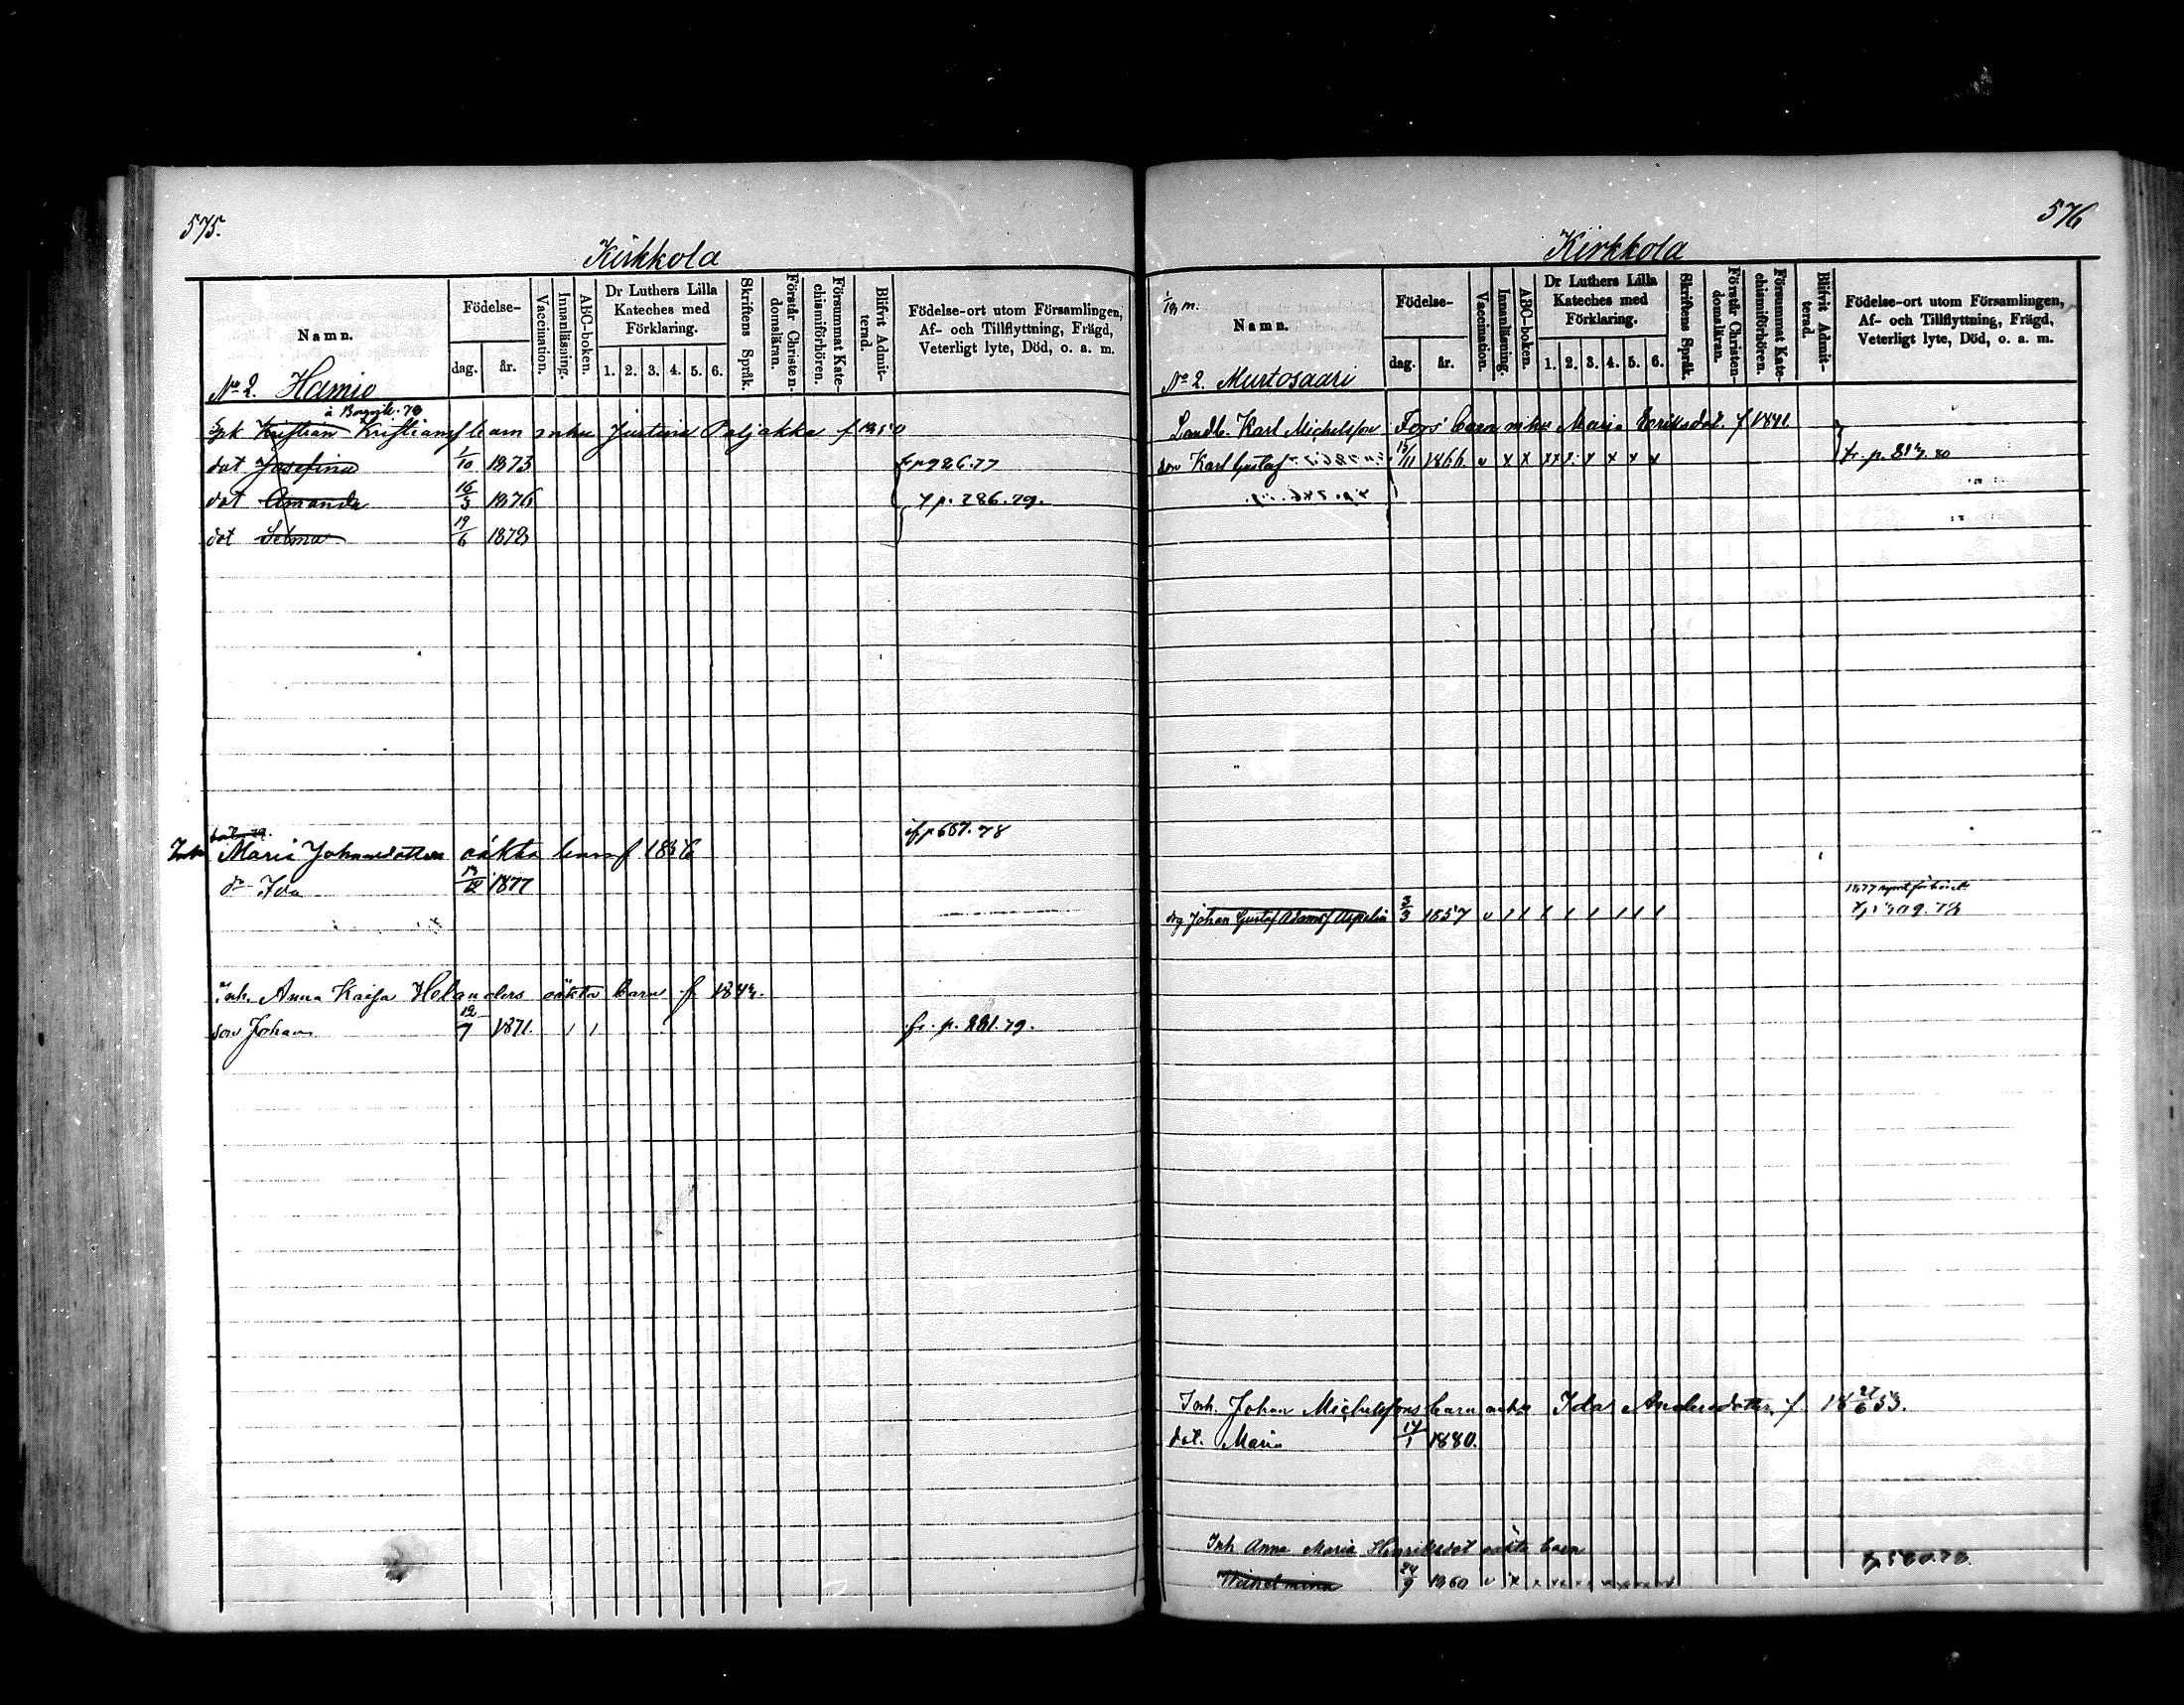 575.
Kirkkola
Namn.
Födelse-
dag.
år.
Vaccination.
Innanläsning.
ABC-boken.
Dr Luthers Lilla
Kateches med
Förklaring.
1. 2. 3. 4. 5. 6.
Skriftens Språk.
Förstår Christen-
domsläran.
Försummat Kate-
chismiförhören.
Blifvit Admit-
terad.
Födelse-ort utom Församlingen,
Af- och Tillflyttning, Frägd,
Veterligt lyte, Död, o. a. m.
No 2. Hamio
Kristian Kristiansf barn mhu Justina Paljakka f 1850
dot Josefina 1/10 1873
dot Amanda 16/3 1876 fr p. 286. 79.
dot Selma 19/6 1878
Inh Maria Johansdotters oäkta barn f 1836
Ida 1877
Inh. Anna Kaisa Helanders oäkta barn f 184
son Johan 12/7 1871. 1 1 fr. p. 221. 79.
576
Kirkkola
Namn.
Födelse-
dag.
år.
Vaccination.
Innanläsning.
ABC-boken.
Dr Luthers Lilla
Kateches med
Förklaring.
1. 2. 3. 4. 5. 6.
Skriftens Språk.
Förstår Christen-
domsläran.
Försummat Kate-
chismiförhören.
Blifvit Admit-
terad.
Födelse-ort utom Församlingen,
Af- och Tillflyttning, Frägd,
Veterligt lyte, Död, o. a. m.
No 2. Murtosaari
Landb. Karl Michelsson Fors' barn mhu Maria Eriksdot. f 1841
son Karl Gustaf 1866. v x x x x x x x x
drg Johan Gustaf Adamsf Aspelin 3/3 1857 v 1 1 1 1 1 1 1 1
Inh. Johan Michelssons barn mhu Ida Andersdotter f. 18 27/6 53.
dot. Maria 17/1 1880.
Inh Anna Maria Henriksdot oäkta barn
Wilhelmina 24/9 1860 v x x x x x x x x